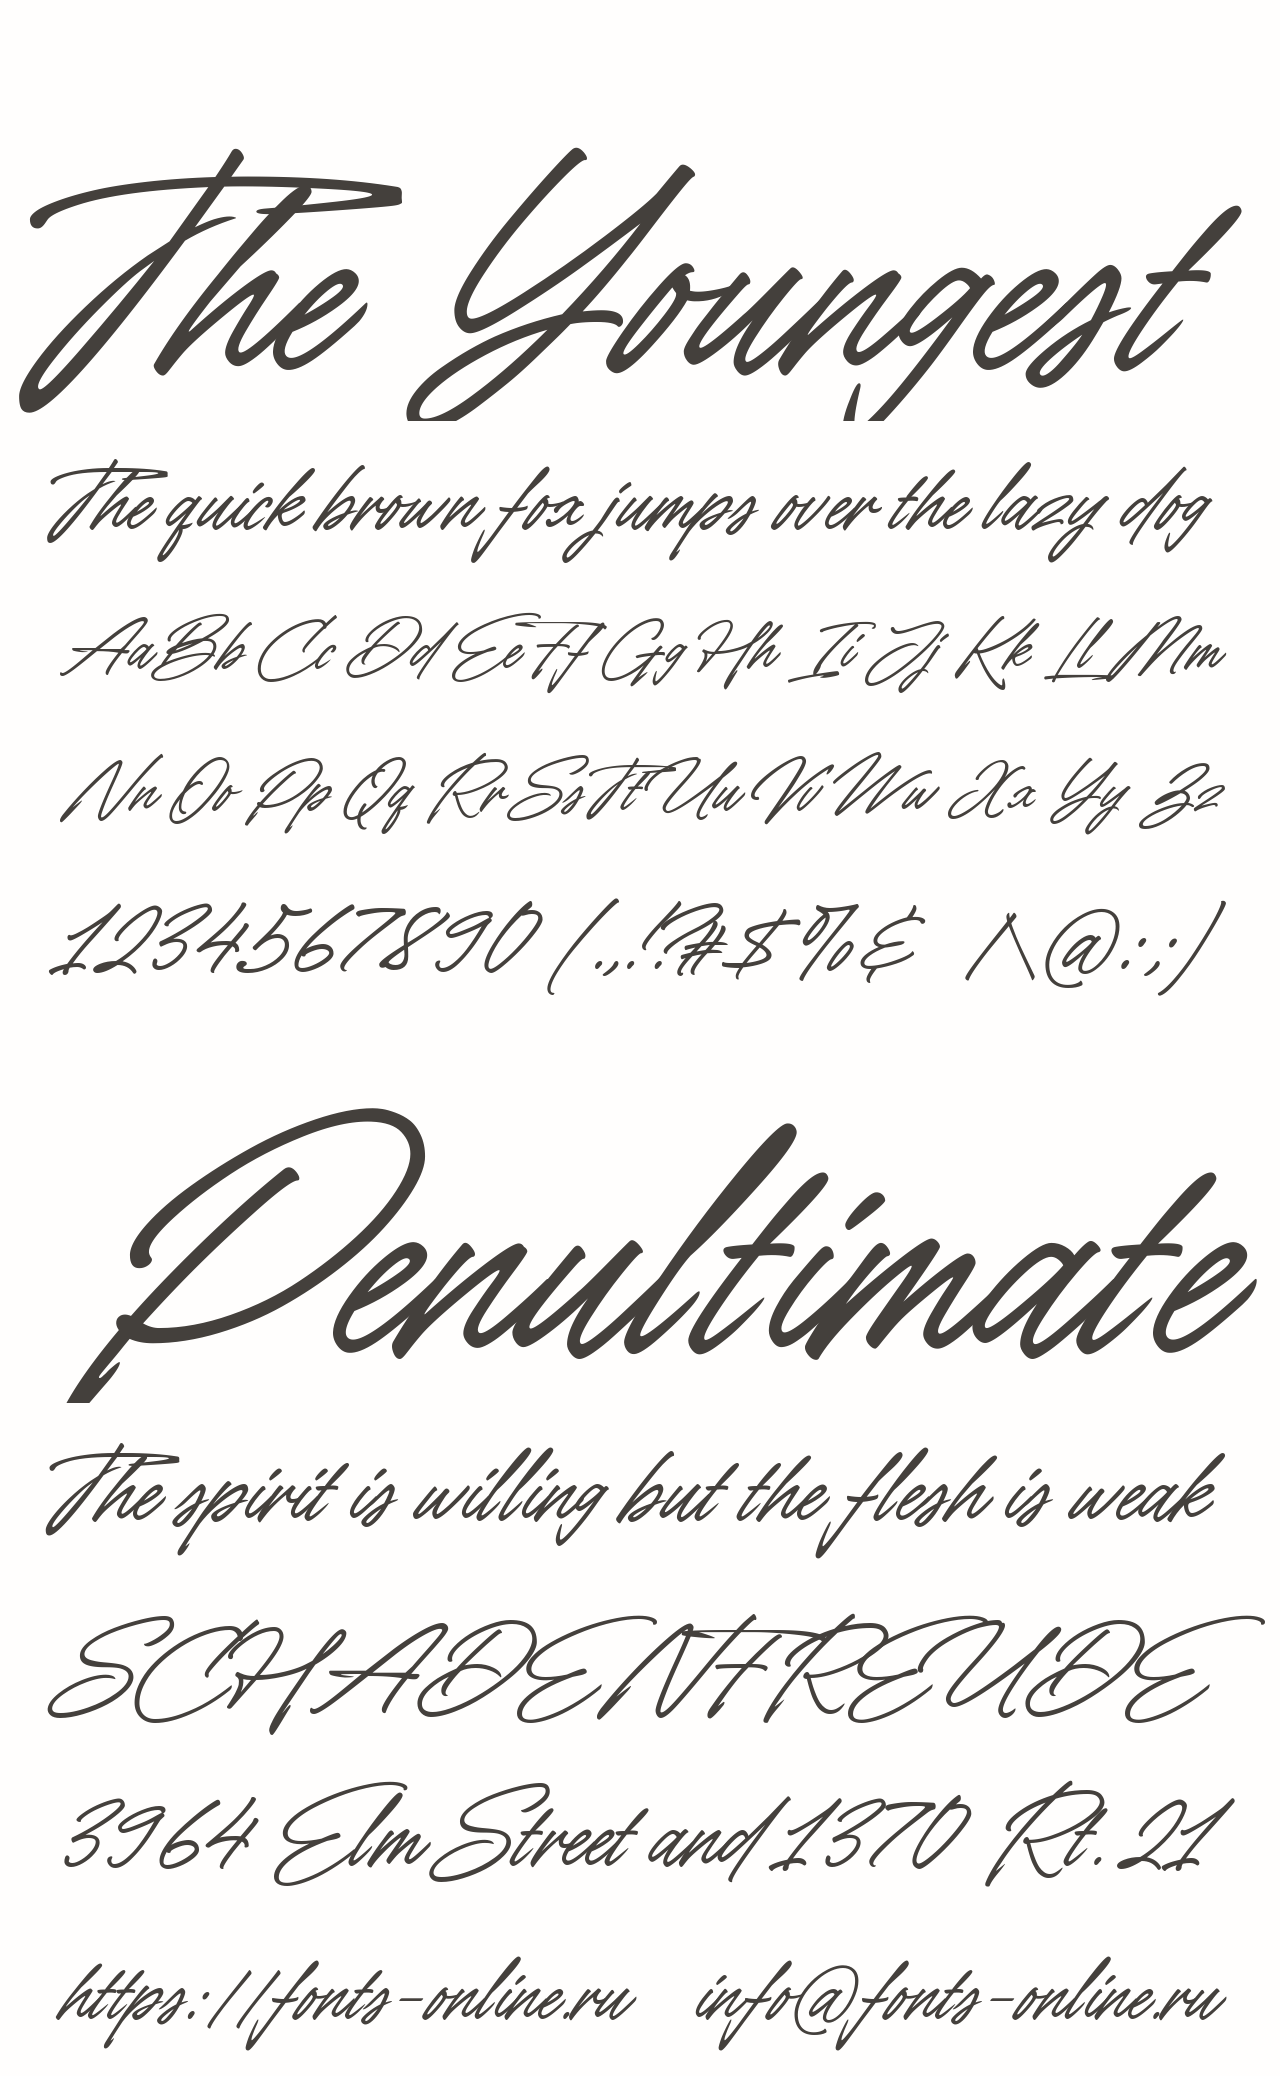 The Youngest
The quick brown fox jumps over the lazy dog
Aa Bb Cc Dd Ee Ff Gg Hh Ii Jj Kk Ll Mm
Nn Oo Pp Qq Rr Ss Tt Uu Vv Ww Xx Yy Zz
1234567890 (.,.!?#$%& /\@:;)
Penultimate
The spirit is willing but the flesh is weak
SCHADENFREUDE
3964 Elm Street and 1370 Rt. 21
https://fonts-online.ru info@fonts-online.ru